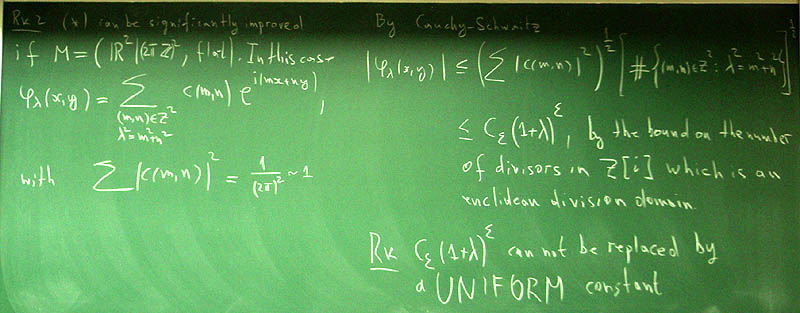 Rk 2 (*) can be significantly improved
if M = (ℝ²/(2πℤ)², flat). In this case
φ_λ(x,y) = ∑_{(m,n)∈ℤ², λ²=m²+n²} c(m,n) e^{i(mx+ny)},
with ∑|c(m,n)|² = 1/(2π)² ~ 1
By Cauchy-Schwartz
|φ_λ(x,y)| ≤ (∑|c(m,n)|²)^{1/2} [#{(m,n)∈ℤ² : λ²=m²+n²}]^{1/2}
≤ C_ε(1+λ)^ε, by the bound on the number
of divisors in Z[i] which is an
euclidean division domain.
Rk C_ε(1+λ)^ε can not be replaced by
a UNIFORM constant